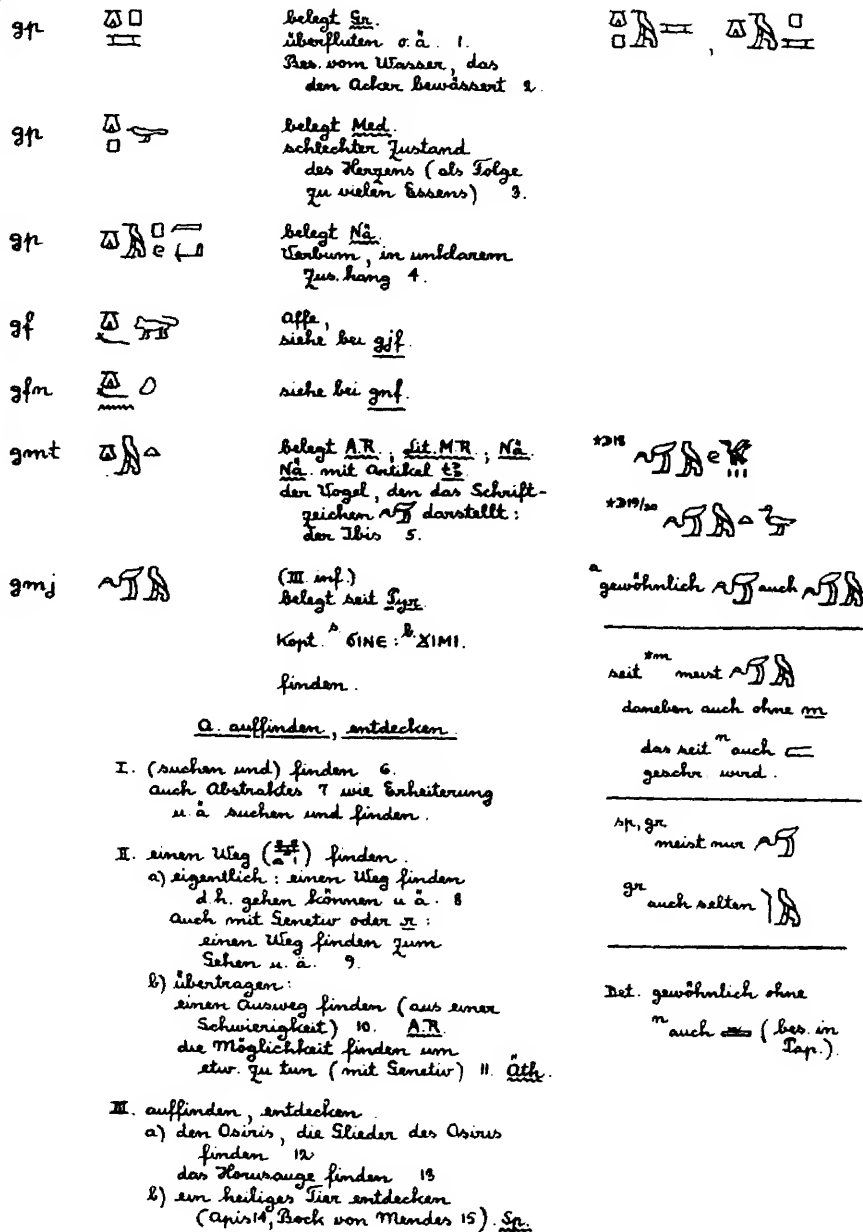 gp belegt Gr.
überfluten o. ä. 1.
Bes. vom Wasser, das
den Acker bewässert 2.
gp belegt Med.
schlechter Zustand
des Herzens (als Folge
zu vielen Essens) 3.
gp belegt Nä.
Verbum, in unklarem
Zus. hang 4.
gf Affe,
siehe bei gjf.
gfn siehe bei gnf.
gmt belegt A.R.; Lit. M.R.; Nä.
Nä. mit Artikel tꜣ
der Vogel, den das Schrift-
zeichen darstellt:
der Ibis 5.
*D18
*D19/20
gmj (III. inf.)
belegt seit Pyr.
Kopt. s. ϭΙΝΕ : b. ϪΙΜΙ.
finden.
A. auffinden, entdecken.
I. (suchen und) finden 6.
auch Abstraktes 7 wie Erheiterung
u. ä. suchen und finden.
II. einen Weg () finden.
a) eigentlich: einen Weg finden
d.h. gehen können u. ä. 8
Auch mit Genetiv oder r:
einen Weg finden zum
Gehen u. ä. 9.
b) übertragen:
einen Ausweg finden (aus einer
Schwierigkeit) 10. A.R.
die Möglichkeit finden um
etw. zu tun (mit Genetiv) 11. Äth.
III. auffinden, entdecken
a) den Osiris, die Glieder des Osiris
finden 12
das Horusauge finden 13
b) ein heiliges Tier entdecken
(Apis 14, Bock von Mendes 15). Sp.
a gewöhnlich auch
seit *m meist
daneben auch ohne m
das seit n auch
geschr. wird.
sp, gr meist nur
gr auch selten
Det. gewöhnlich ohne
n auch (bes. in
Pap.).